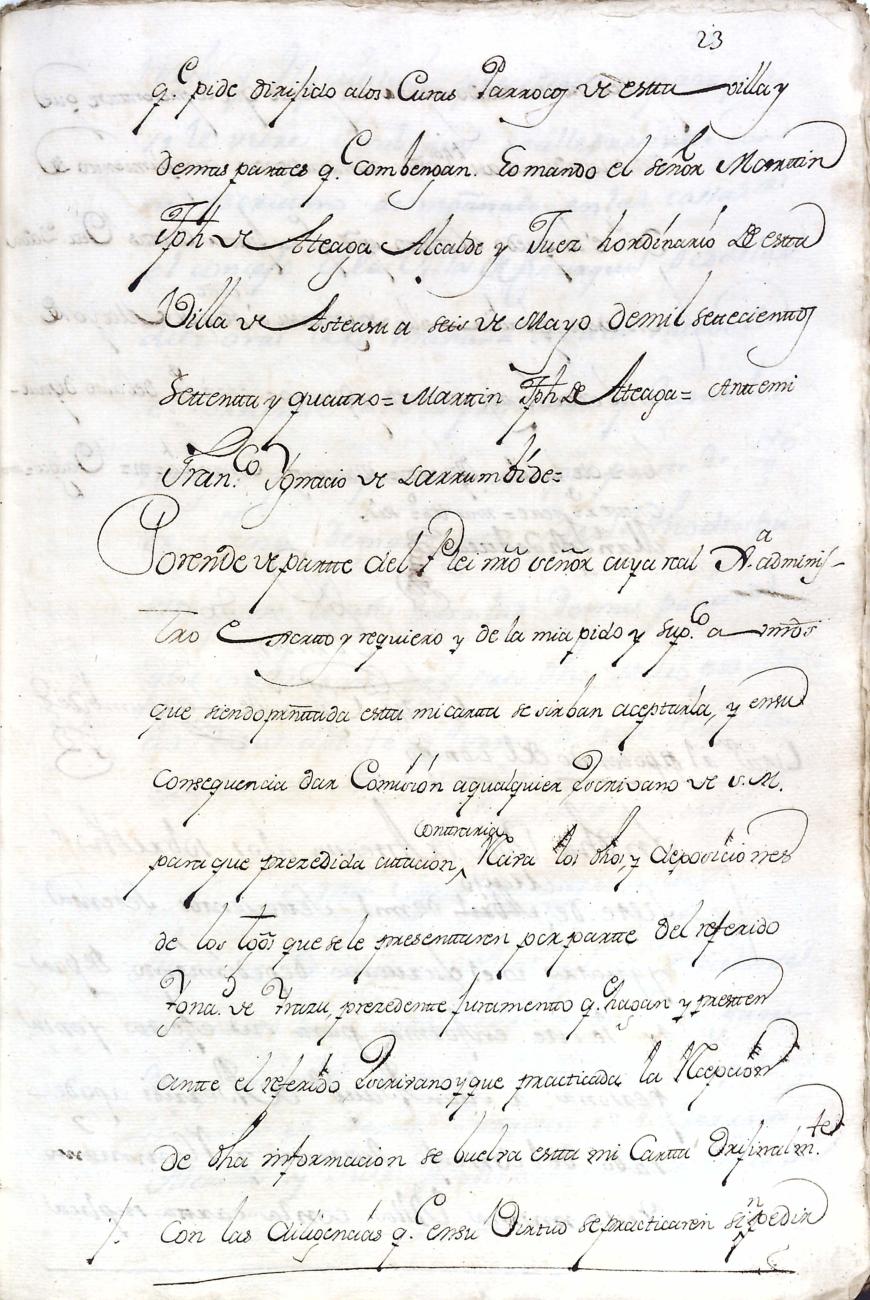 23
q.e pide dirijido a los Curas Parrocos de estta villa y
demas parttes q.e combengan. Lo mando el señor Marttin
Jph de Atteaga Alcalde y Juez hordinario de estta
Villa de Asteasu a seis de Mayo de mil settecienttos
Settentta y quattro = Marttin Jph de Atteaga = Antte mi
Fran.co Ygnacio de Larrumbide =
Porende de partte del Rei nrõ señor cuya real J.a adminis-
tro exsortto y requiero y de la mia pido y sup.co a vmrds
que siendo prñttada estta mi cartta se sirban aceptarla, y en su
consequencia dar Comision a qualquier Escrivano de s. M.
contraria
para que prezedida cittacion, Reciva los dhos, y deposiciones
de los tgõs que se le presenttaren por partte del referido
Ygna.o de Yrazu, prezedente juramentto q.e hagan y prestten
antte el referido Escrivano y que practicada la Recepcion
de dha informacion se buelva estta mi Cartta Orijinalm.te
con las diligencias q.e en su Virttud se practicaren sin pedir